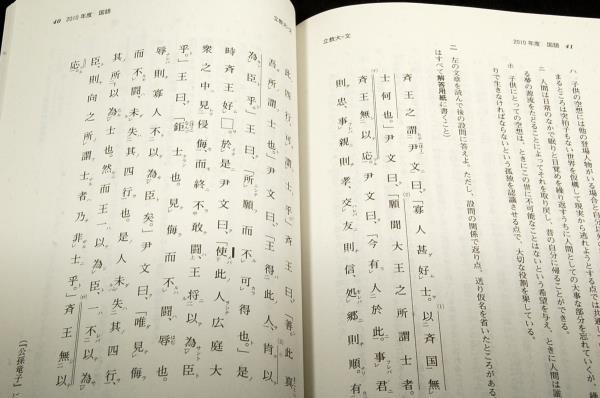 立教大-文 2010年度 国語 41
ハ 子供の空想には他の登場人物がいる場合と自分
まるところは突拍子もない世界を仮構して現実から逃れようとする点では共通して
ニ 人間は日常のなかで眠りと目覚めを繰り返すうちに人間としての大事な部分を忘れていくが、
る夢の源流をたどることによってそれを取り戻し、昔の自分に帰ることができる。
ホ 子供にとっての空想は、ときにこの世に不可能なことはないという希望を与え、ときに人間は誰
りで生きなければならないという孤独を認識させる点で、大切な役割を果している。
二 左の文章を読んで後の設問に答えよ。ただし、設問の関係で返り点、送り仮名を省いたところがある。
はすべて解答用紙に書くこと)
斉王之謂尹文曰、「寡人甚好士。以斉国無
士何也。」尹文曰、「願聞大王之所謂士者。」
斉王無以応。尹文曰、「今有人於此。事君
則忠、事親則孝、交友則信、処郷則順。有
40 2010年度 国語 立教大-文
此四行、可謂士乎。」斉王曰、「善。此真
吾所謂士也。」尹文曰、「王得此人、肯以
為臣乎。」王曰、「所願而不可得也。」是
時斉王好□。於是尹文曰、「使此人広庭大
衆之中、見侵侮而終不敢闘、王将以為臣
乎。」王曰、「鉅士也。見侮而不闘、辱也。
辱則寡人不以為臣矣。」尹文曰、「唯見侮
而不闘、未失其四行也。是人未失其四行、
其所以為士也。然而王一以為臣、一不以為
臣、則向之所謂士者、乃非士乎。」斉王無以
応。
(『公孫竜子』に